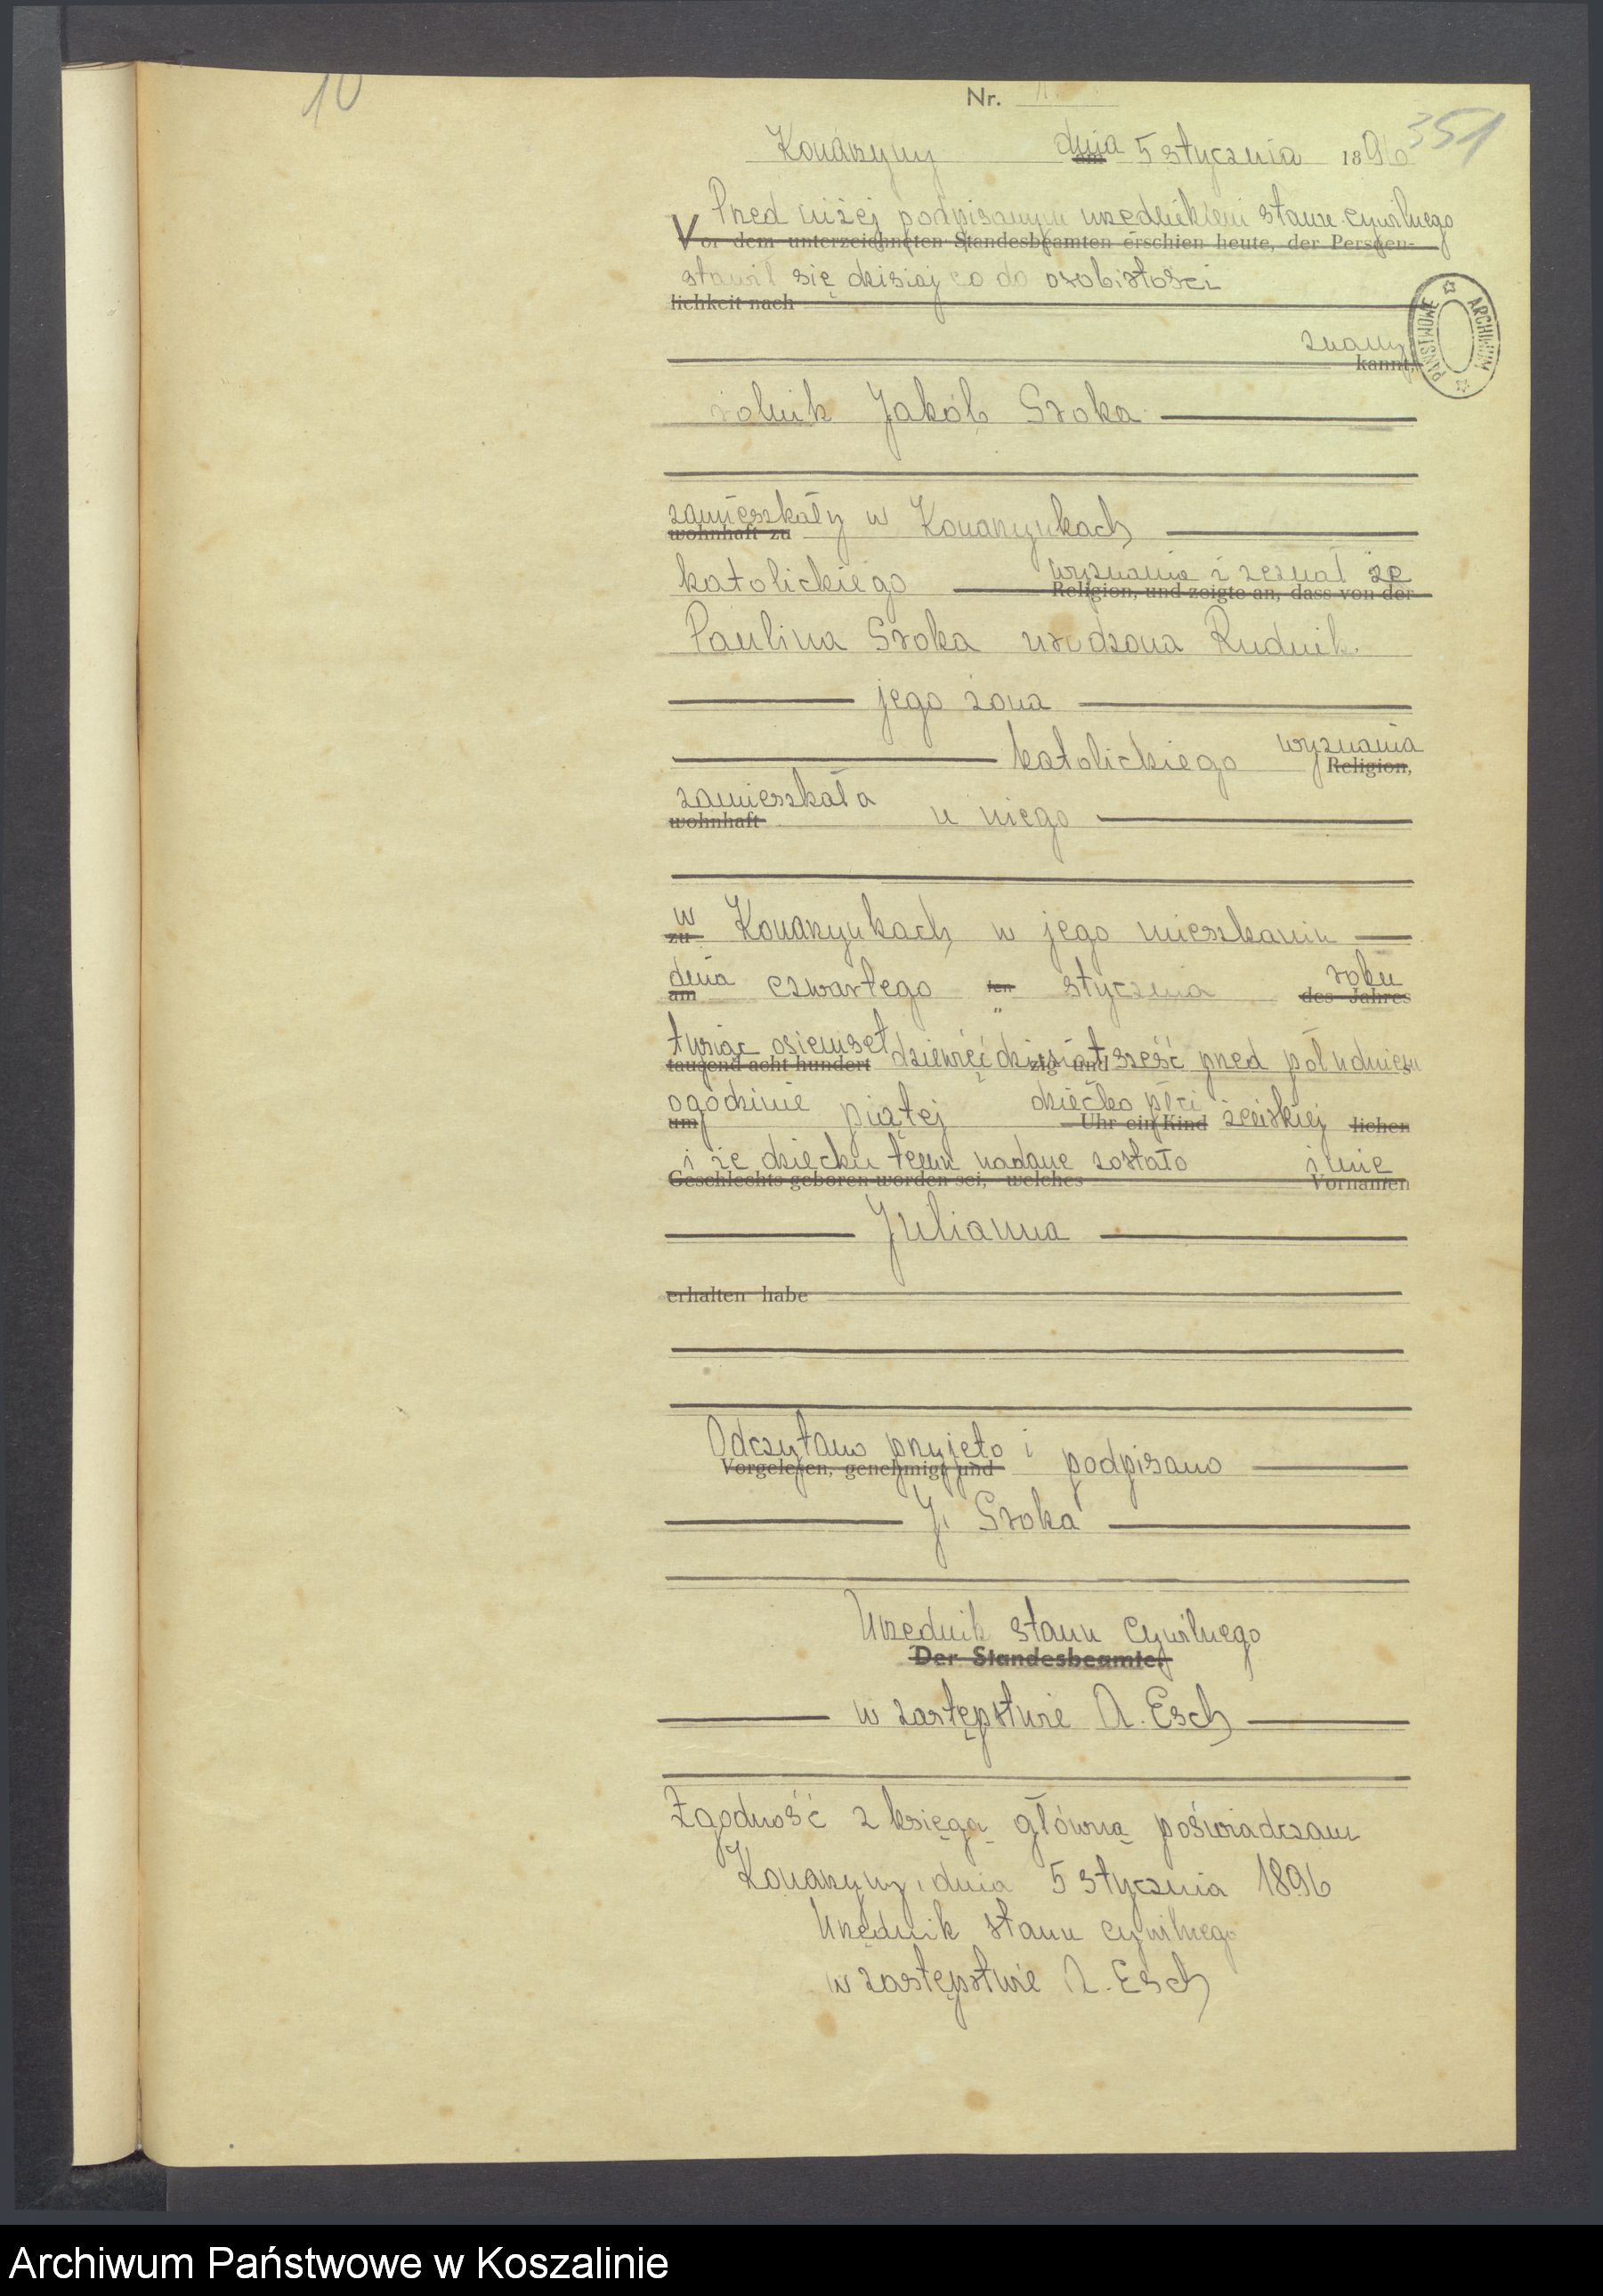 10
Nr.
351
Konarzyny dnia am 5 stycznia 1896
Przed niżej podpisanym urzędnikiem stanu cywilnego
Vor dem unterzeichneten Standesbeamten erschien heute, der Persoen-
stawił się dzisiaj co do osobistości
lichkeit nach
znany
kannt,
ARCHIWUM PAŃSTWOWE
rolnik Jakób Sroka
zamieszkały w Konarzynkach
wohnhaft zu
katolickiego wyznania i zeznał że
Religion, und zeigte an, dass von der
Paulina Sroka urodzona Rudnik
jego żona
katolickiego wyznania
Religion,
zamieszkała u niego
wohnhaft
w Konarzynkach w jego mieszkaniu
zu
dnia czwartego ten stycznia roku
am des Jahres
tysiąc osiemset dziewięćdziesiąt sześć przed południem
tausend acht hundert zig und
o godzinie piątej dziecko płci żeńskiej lichen
um Uhr ein Kind
i że dziecku temu nadane zostało imię
Geschlechts geboren worden sei, welches Vornamen
Julianna
erhalten habe
Odczytano przyjęto i podpisano
Vorgelesen, genehmigt und
J. Sroka
Urzędnik stanu cywilnego
Der Standesbeamte,
w zastępstwie A. Esch
Zgodność z księgą główną poświadczam
Konarzyny, dnia 5 stycznia 1896
Urzędnik stanu cywilnego
w zastępstwie A. Esch
Archiwum Państwowe w Koszalinie